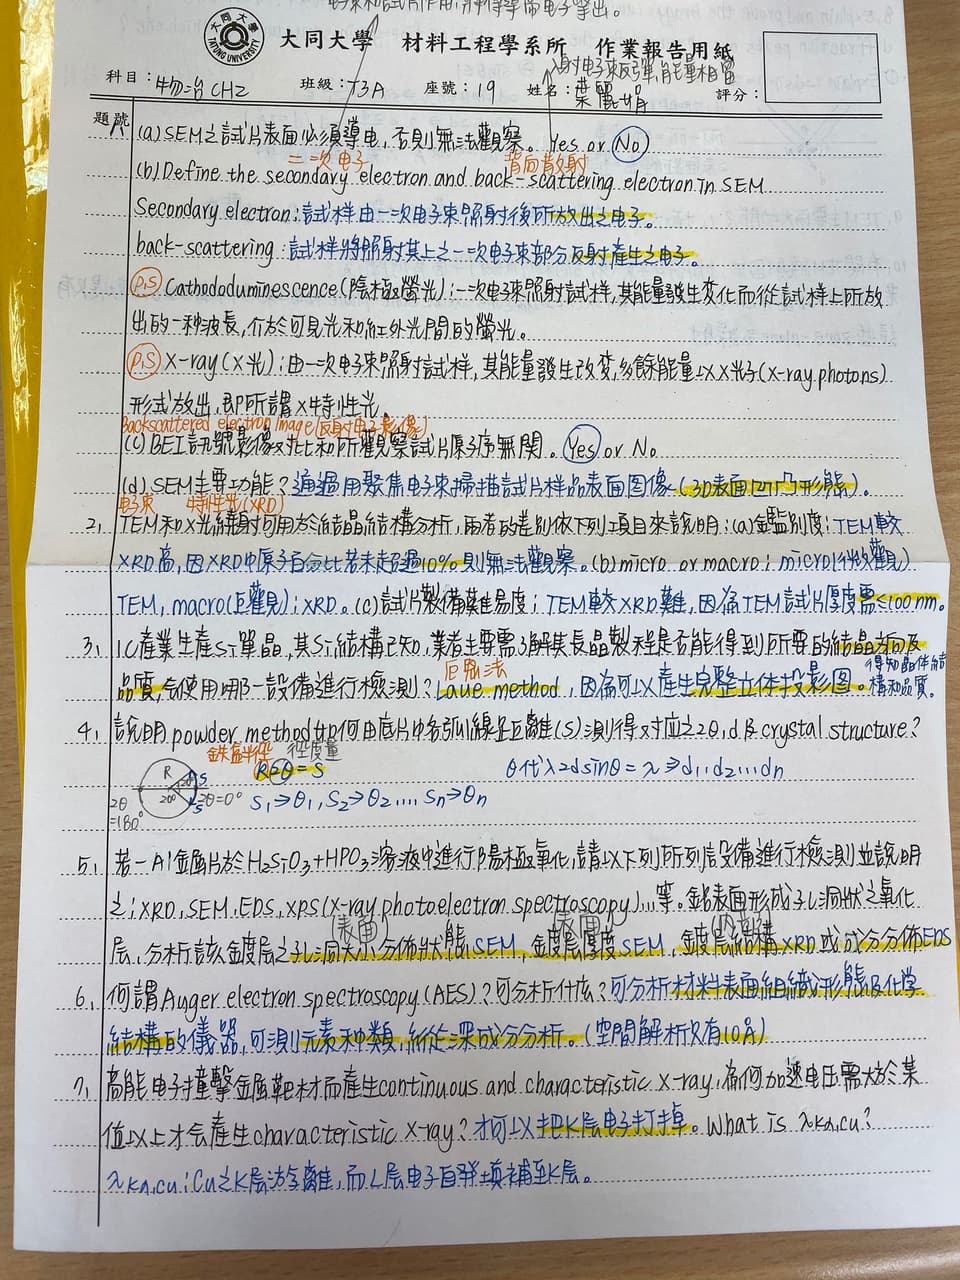 大同大學 材料工程學系所 作業報告用紙
入射电子束反彈,能量相當
科目:物冶CHZ 班級:T3A 座號:19 姓名: 評分:
題號
1, (a)SEM之試片表面必須導电,否則無法觀察。 Yes or No
二次电子 背向散射
(b)Define the secondary electron and back-scattering electron in SEM
Secondary electron:試样由一次电子束照射後所放出之电子。
back-scattering:試样將照射其上之一次电子束部分反射產生之电子。
P.S Cathododuminescence(陰極螢光):一次电子束照射試样,其能量發生变化而從試样上所放
出的一种波長,介於可見光和紅外光間的螢光。
P.S X-ray(X光):由一次电子束照射試样,其能量發生改变,多餘能量以X光子(X-ray photons)
形式放出,即所謂X特性光。
Backscattered electron Image(反射电子影像)
(c)BEI訊號影像对比和所觀察試片原子序無関。 Yes or No
(d)SEM主要功能?通過用聚焦电子束掃描試片样品表面图像(3D表面凹凸形態)。
电子束 特性光(XRD)
2, TEM和X光繞射可用於結晶結構分析,兩者的差別依下列項目來說明:(a)鑑別度:TEM較
XRD高,因XRD中原子百分比若未超過10%則無法觀察。(b)micro or macro:micro(微觀)
TEM,macro(巨觀):XRD。(c)試片製備難易度:TEM較XRD難,因為TEM試片厚度需≤100nm。
3, IC產業生產Si單晶,其Si結構已知,業者主要需了解其長晶製程是否能得到所要的結晶方向及
品質,会使用哪一設備進行檢測?Laue method,因為可以產生完整立体投影图。得知晶体結
構和品質。
厄勞法
4, 說明powder method如何由底片中各弧線距離(S)測得对应之2θ,d及crystal structure?
鉄盒半徑 徑度量
R2θ=S θ代入2dsinθ=λ⇒d₁,d₂...dn
R 2θ S
2θ 2θ=0° S₁⇒θ₁,S₂⇒θ₂....Sn⇒θn
=180° S
5, 若一Al金屬片於H₂SiO₃+HPO₃溶液中進行陽極氧化,請以下列所列設備進行檢測並說明
之:XRD,SEM,EDS,XPS(X-ray photoelectron spectroscopy)...等。鋁表面形成孔洞狀之氧化
(表面) 表面
層,分析該金度層之孔洞大小分佈狀態SEM,金度层厚度SEM,鍍层結構XRD或成分分佈EDS
6, 何謂Auger electron spectroscopy(AES)?可分析什広?可分析材料表面組織形態及化学
結構的儀器,可測元素种類,縱深成分分析。(空間解析仅有10Å)
7, 高能电子撞擊金屬靶材而產生continuous and characteristic X-ray,為何加速电压需大於某
值以上才会產生characteristic X-ray?才可以把K层电子打掉。What is λkα,cu?
λkα,cu:Cu之K层游離,而L层电子自發填補至K层。